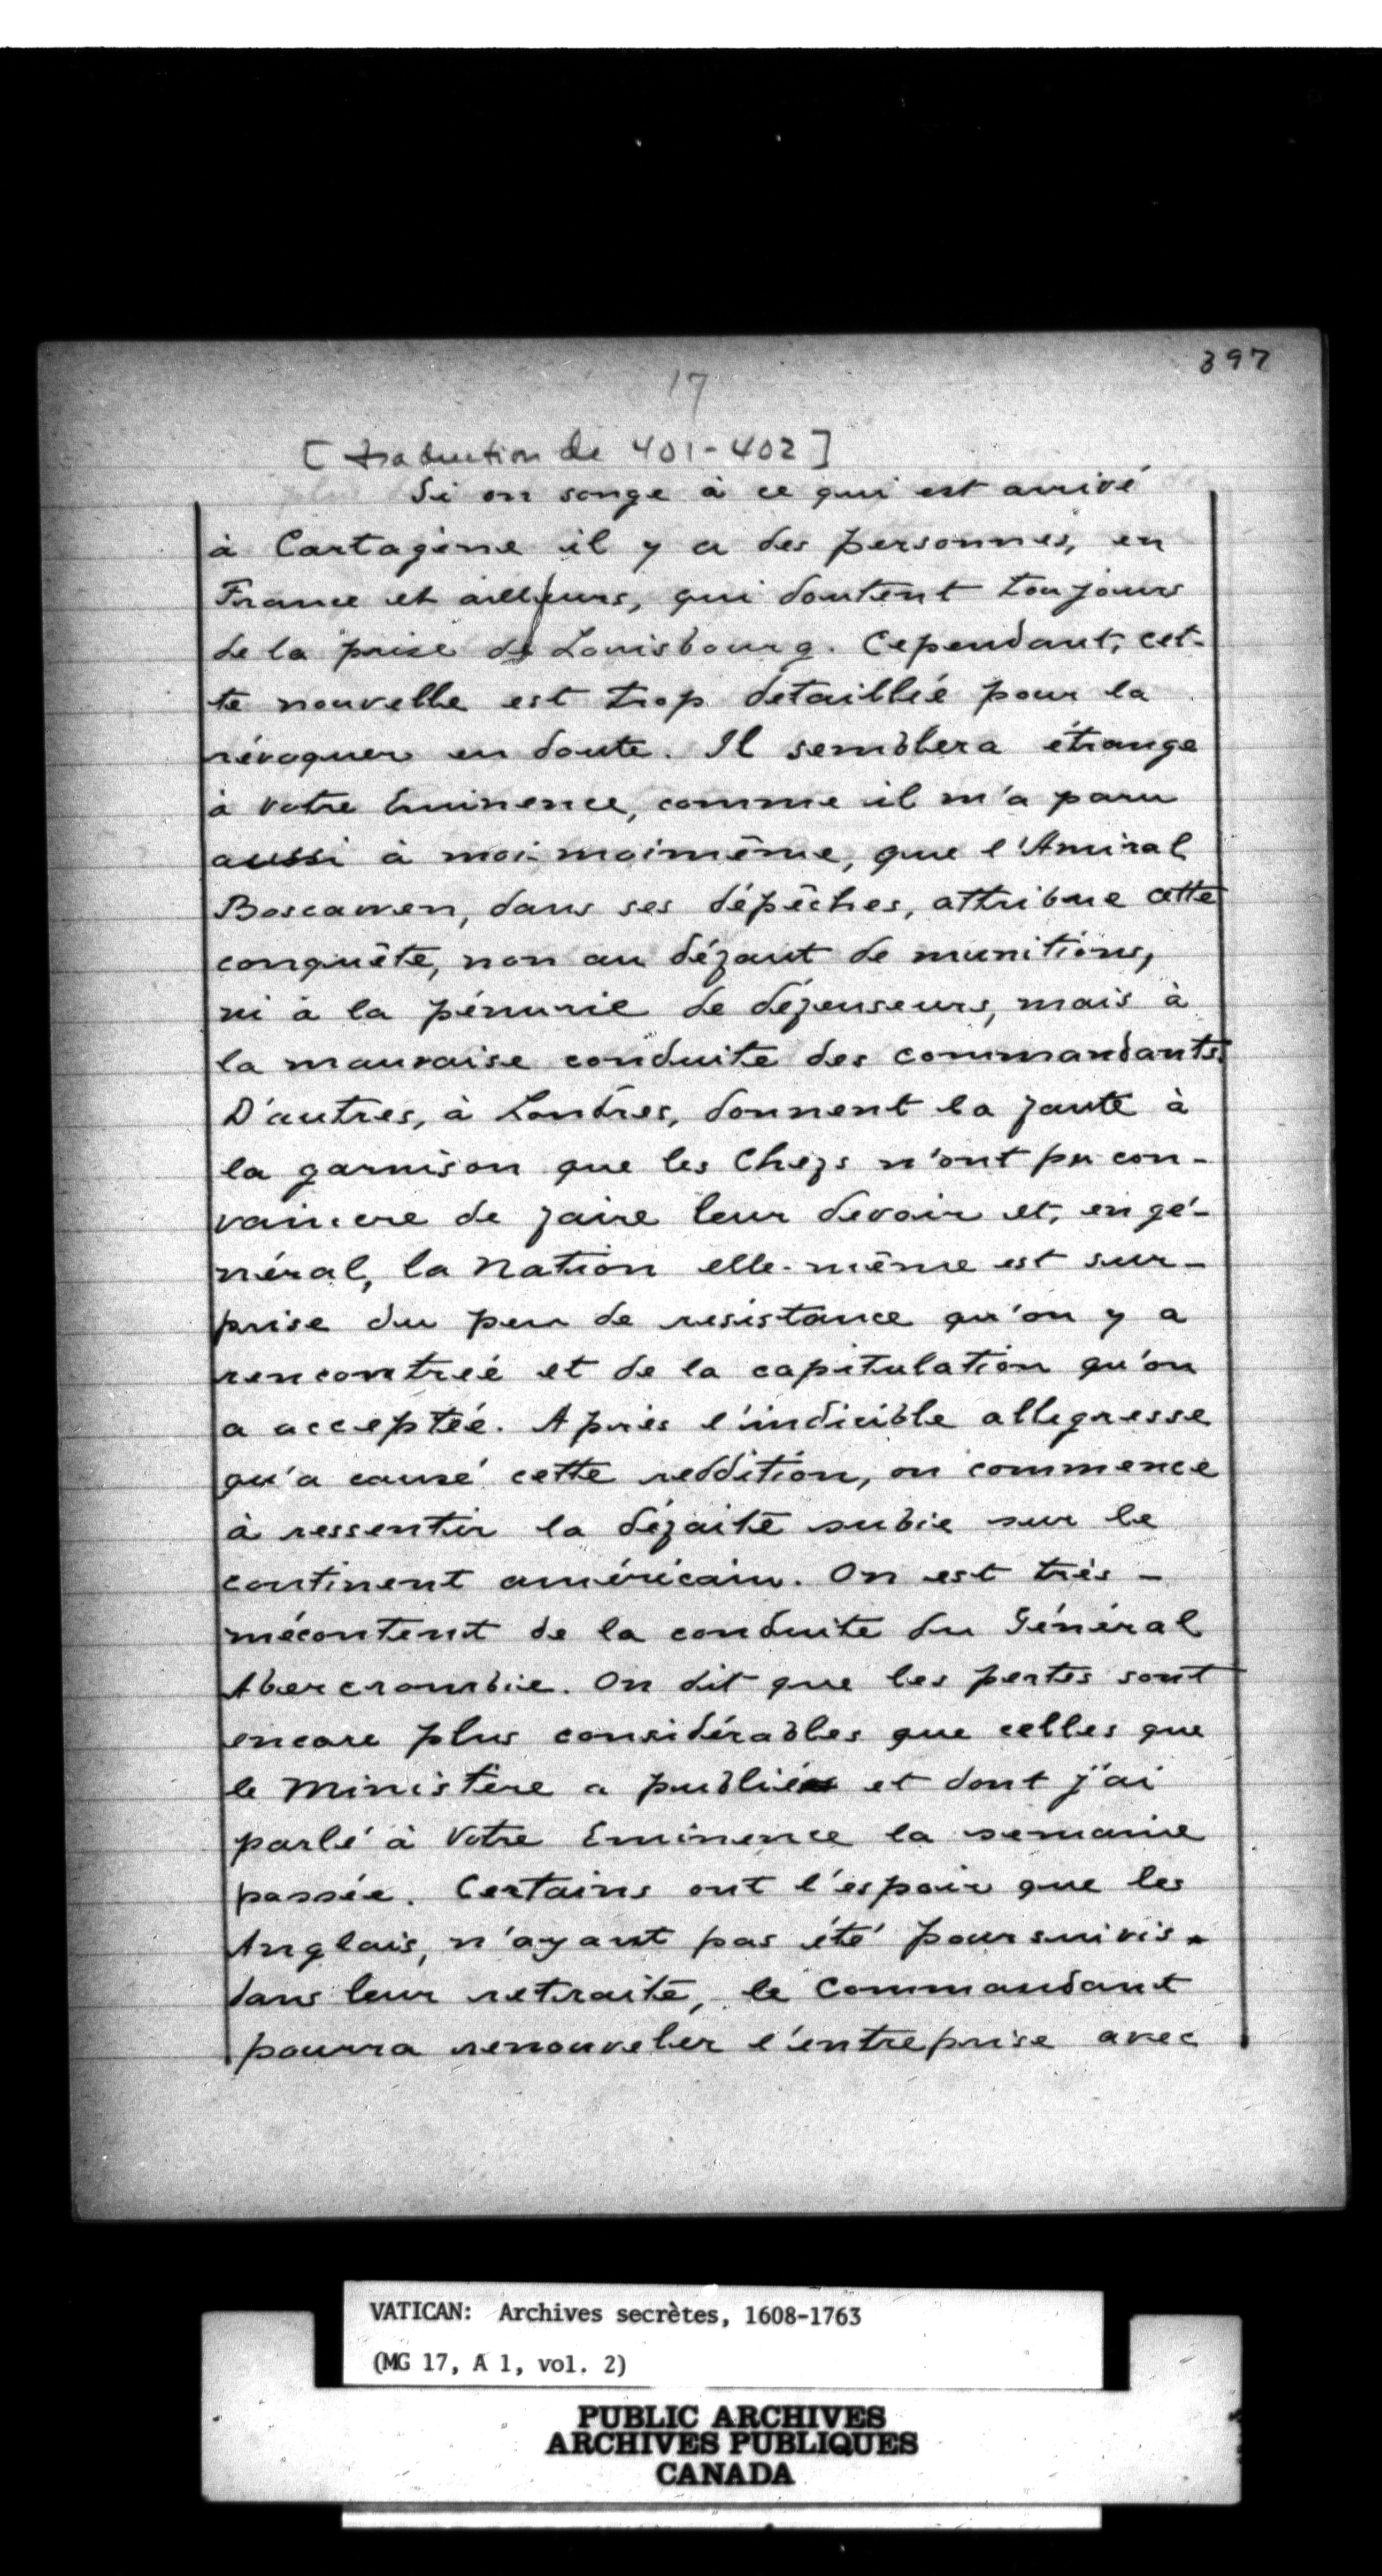 397
17
[traduction de 401-402]
Si on songe à ce qui est arrivé
à Cartagène il y a des personnes, en
France et ailleurs, qui doutent toujours
de la prise de Louisbourg. Cependant, cet-
te nouvelle est trop détaillée pour la
révoquer en doute. Il semblera étrange
à votre Eminence, comme il m'a paru
aussi à moi-moimême, que l'Amiral
Boscawen, dans ses dépêches, attribue cette
conquête, non au défaut de munitions,
ni à la pénurie de défenseurs, mais à
la mauvaise conduite des commandants.
D'autres, à Londres, donnent la faute à
la garnison que les Chefs n'ont pu con-
vaincre de faire leur devoir et, en gé-
néral, la Nation elle-même est sur-
prise du peu de resistance qu'on y a
rencontreé et de la capitulation qu'on
a acceptée. Après l'indicible allegresse
qu'a causé cette reddition, on commence
à ressentir la défaite subie sur le
continent américain. On est très-
mécontent de la conduite du Général
Abercrombie. On dit que les pertes sont
encore plus considérables que celles que
le Ministère a publié et dont j'ai
parlé à Votre Eminence la semaine
passée. Certains ont l'espoir que les
Anglais, n'ayant pas été poursuivis
dans leur retraite, le Commandant
pourra renouveler l'entreprise avec
VATICAN: Archives secrètes, 1608-1763
(MG 17, A 1, vol. 2)
PUBLIC ARCHIVES
ARCHIVES PUBLIQUES
CANADA